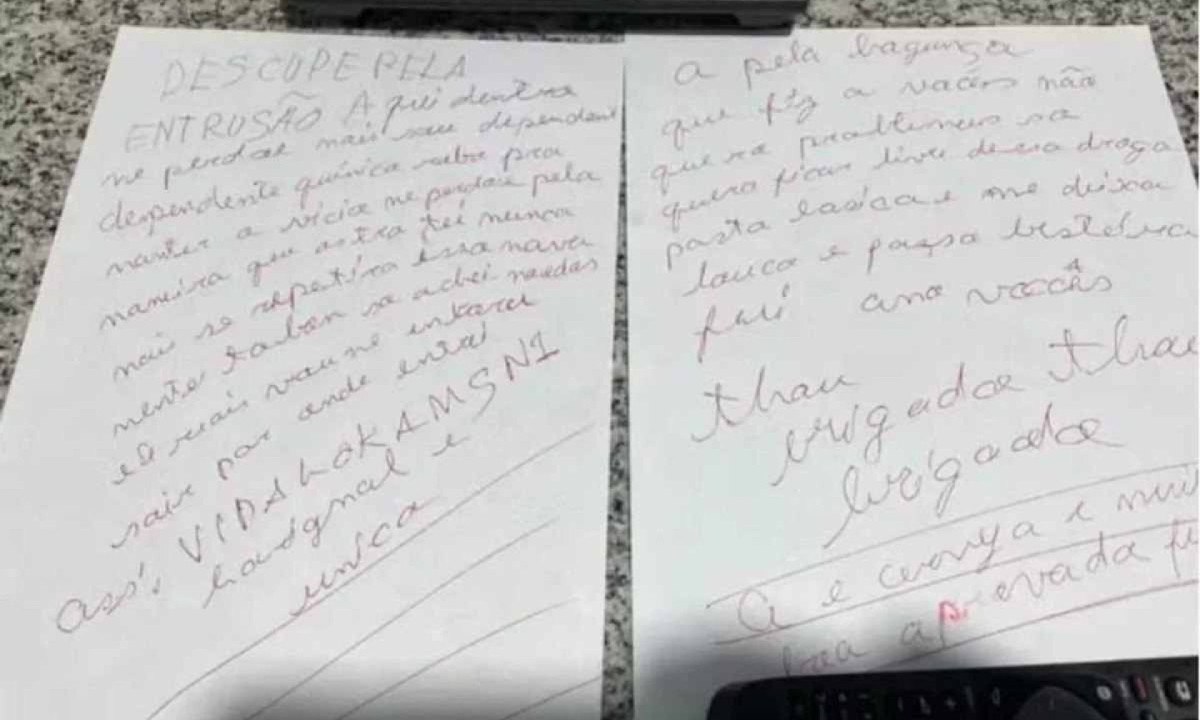 DESCUPE PELA
ENTRUSÃO A qui dentro
me perdoe mais sou dependent
dependente quimica robo pra
manter o vicio me perdoe pela
maneira que entrei nunca
mais se repetira Essa nova
mente só achei moedas
e mais vou me
sair por onde entrei
ass: VIDA LOKA MSN1
e
unica
a pela bagunça
que fiz a voces não
quero problemas so
quero ficar livre dessa droga
pasta basica me deixa
louca e
fui amo vocês
thau
brigadoe thau
brigadoe
a e cerveja e mui
boa aprovada fu